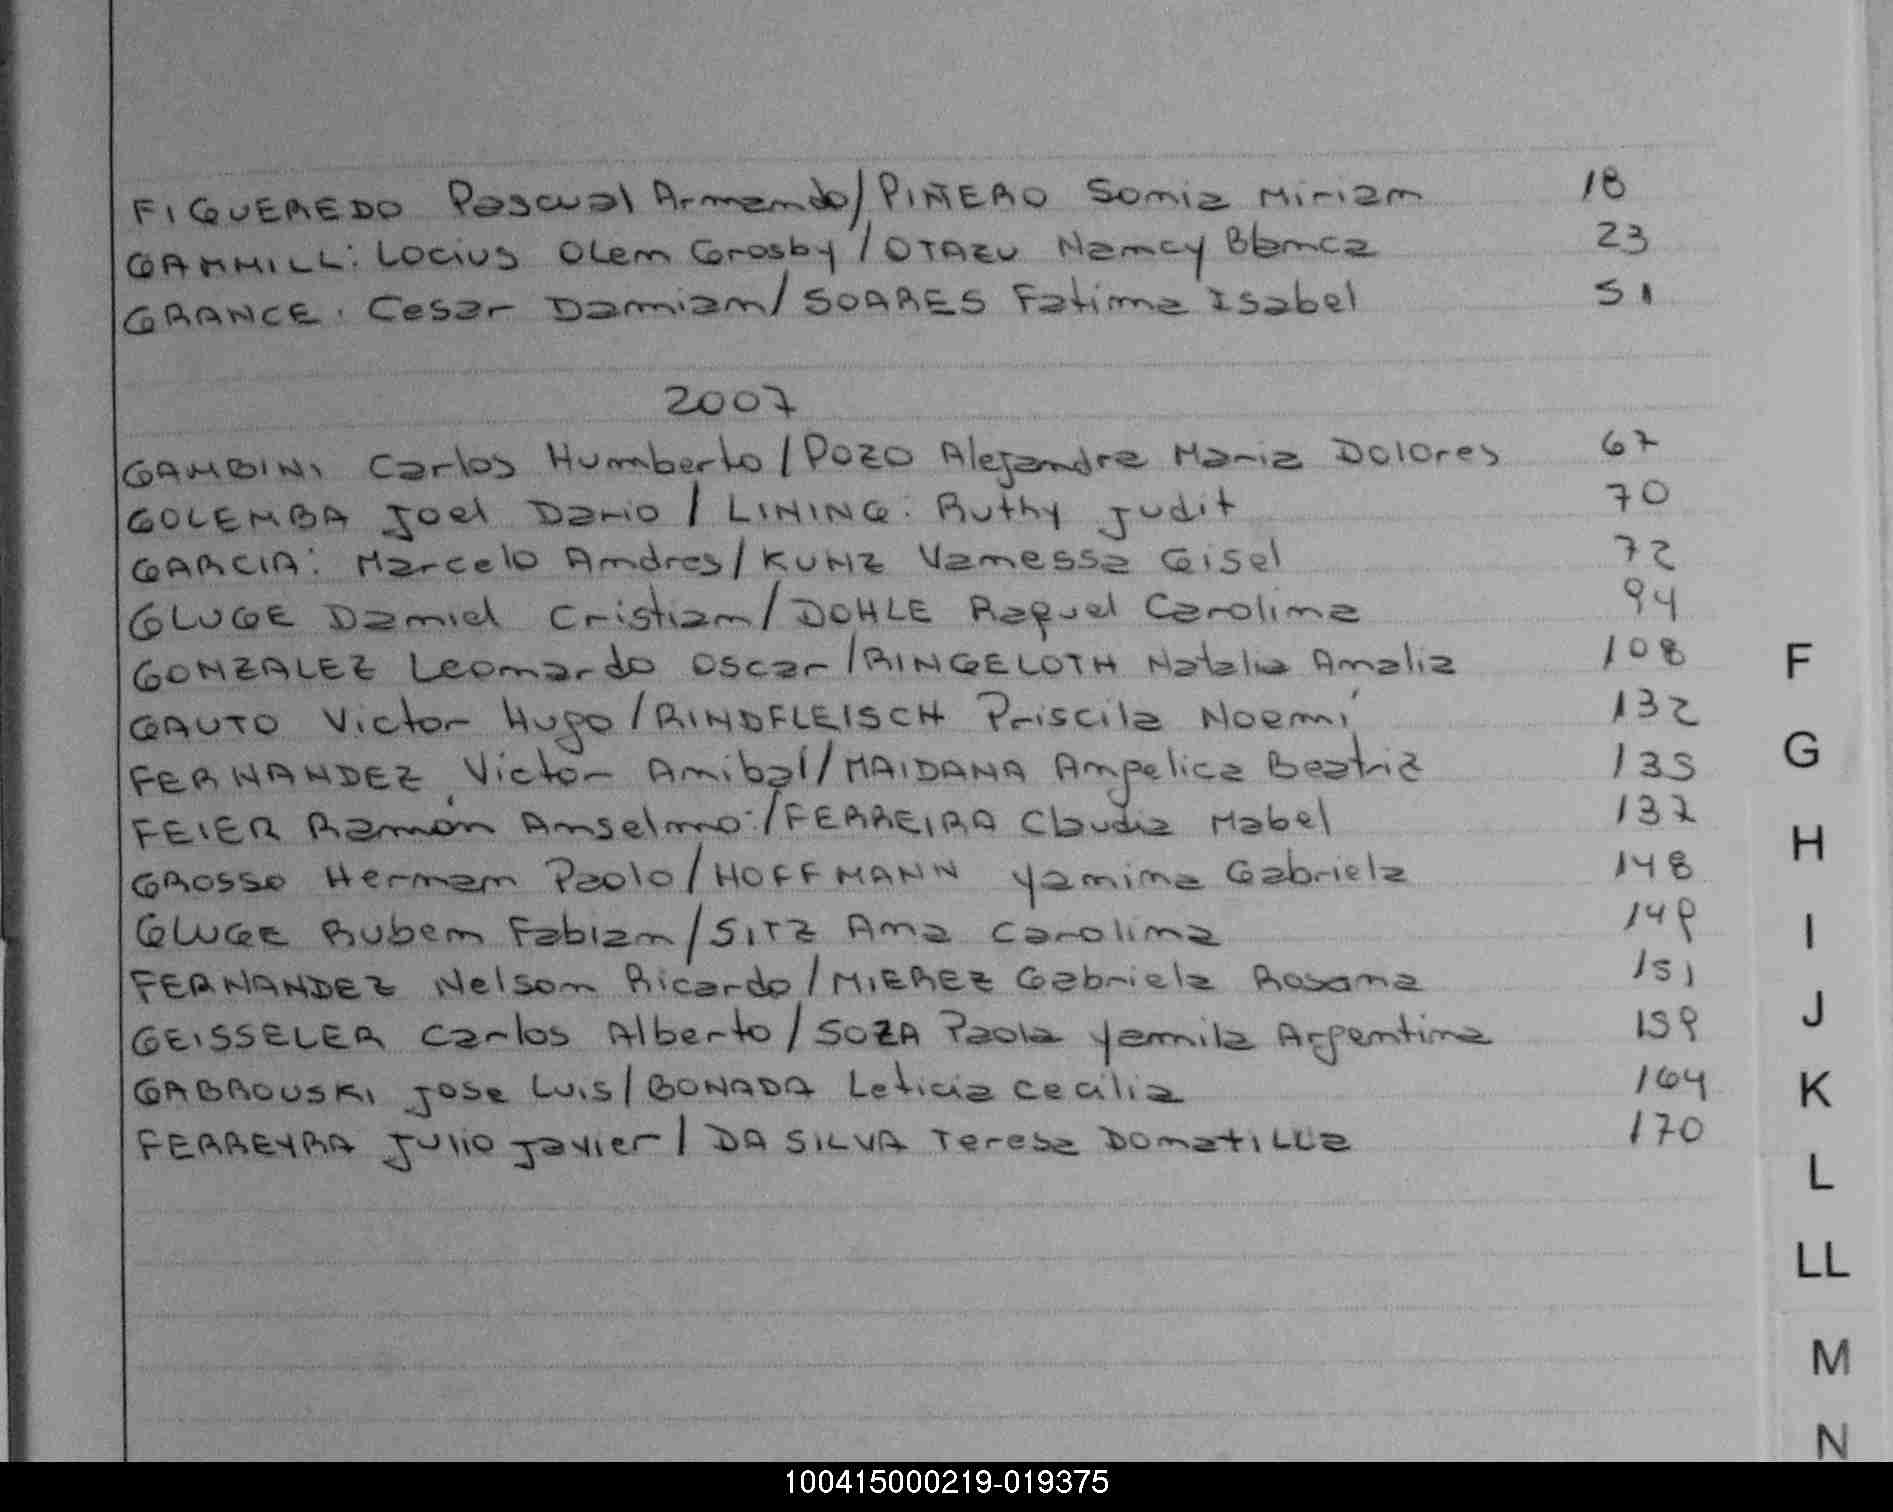 FIGUEREDO Pascual Armando/PIÑERO Sonia Miriam 18
GAMMILL: Locius Olen Grosby/OTAZU Nancy Blanca 23
GRANCE. Cesar Damian/SOARES Fatima Isabel 51
2007
GAMBINI Carlos Humberto/POZO Alejandra Maria Dolores 67
GOLEMBA Joel Dario/LINING: Ruthy Judit 70
GARCIA: Marcelo Andres/KUNZ Vanessa Gisel 72
GLUGE Daniel Cristian/DOHLE Raquel Carolina 94
GONZALEZ Leonardo Oscar/RINGELOTH Natalia Amalia 108
GAUTO Victor Hugo/RINDFLEISCH Priscila Noemí 132
FERNANDEZ Victor Anibal/MAIDANA Angelica Beatriz 135
FEIER Ramón Anselmo:/FERREIRA Claudia Mabel 137
GROSSO Hernan Paolo/HOFFMANN Yanina Gabriela 148
GLUGE Ruben Fabian/SITZ Ana Carolina 149
FERNANDEZ Nelson Ricardo/MIEREZ Gabriela Roxana 151
GEISSELER Carlos Alberto/SOZA Paola Yamila Argentina 159
GABROUSKI Jose Luis/BONADA Leticia Cecilia 164
FERREYRA Julio Javier/DA SILVA Teresa Domatilla 170
F
G
H
I
J
K
L
LL
M
N
100415000219-019375